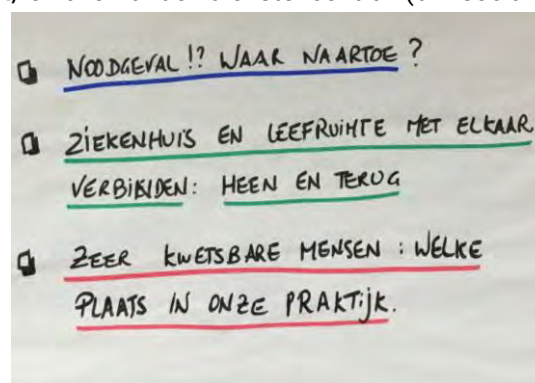 NOODGEVAL !? WAAR NAARTOE ?
ZIEKENHUIS EN LEEFRUIMTE MET ELKAAR
VERBINDEN: HEEN EN TERUG
ZEER KWETSBARE MENSEN : WELKE
PLAATS IN ONZE PRAKTIJK.